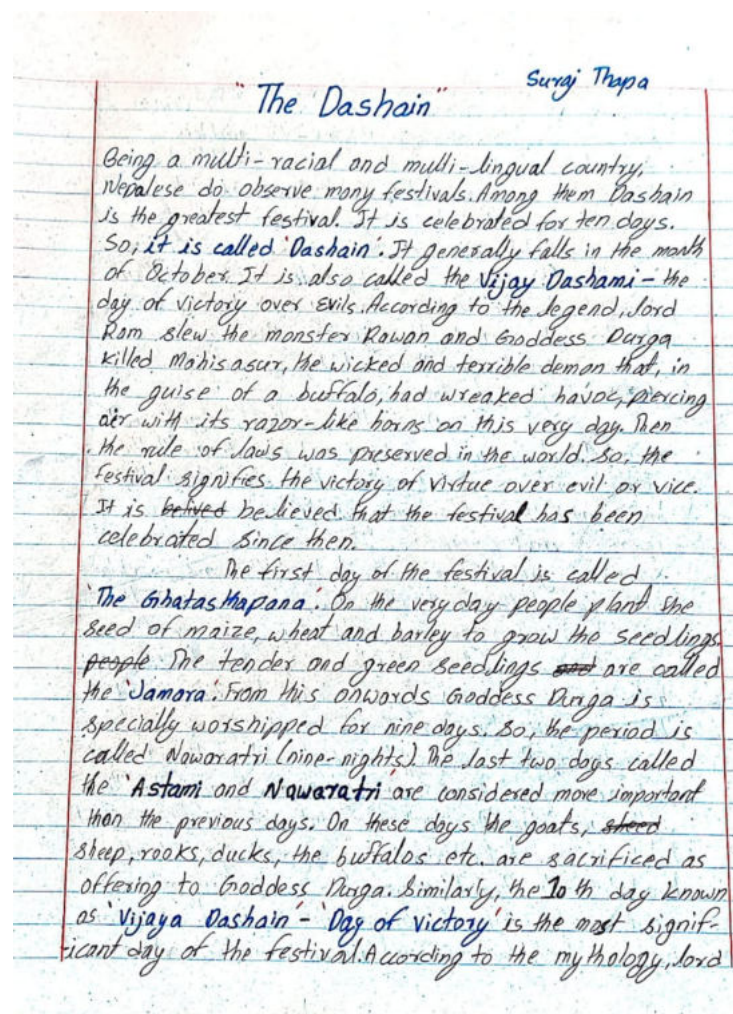 Suraj Thapa
"The Dashain"
Being a multi-racial and multi-lingual country,
Nepalese do observe many festivals. Among them Dashain
is the greatest festival. It is celebrated for ten days.
So, it is called 'Dashain'. It generally falls in the month
of October. It is also called the Vijay Dashami - the
day of victory over evils. According to the legend, lord
Ram slew the monster Rawan and Goddess Durga
killed Mahisasur, the wicked and terrible demon that, in
the guise of a buffalo, had wreaked havoc, piercing
air with its razor-like horns on this very day. Then
the rule of laws was preserved in the world. So, the
festival signifies the victory of virtue over evil or vice.
It is belived believed that the festival has been
celebrated since then.
The first day of the festival is called
'The Ghatasthapana'. On the very day people plant the
seed of maize, wheat and barley to grow the seedlings.
people The tender and green seedlings and are called
the 'Jamara'. From this onwards Goddess Durga is
specially worshipped for nine days. So, the period is
called Nawaratri (nine-nights). The last two days called
the 'Astami and Nawaratri' are considered more important
than the previous days. On these days the goats, sheed
sheep, rooks, ducks, the buffalos etc. are sacrificed as
offering to Goddess Durga. Similarly, the 10th day known
as 'Vijaya Dashain' - 'Day of victory' is the most signif-
-icant day of the festival. According to the mythology, lord